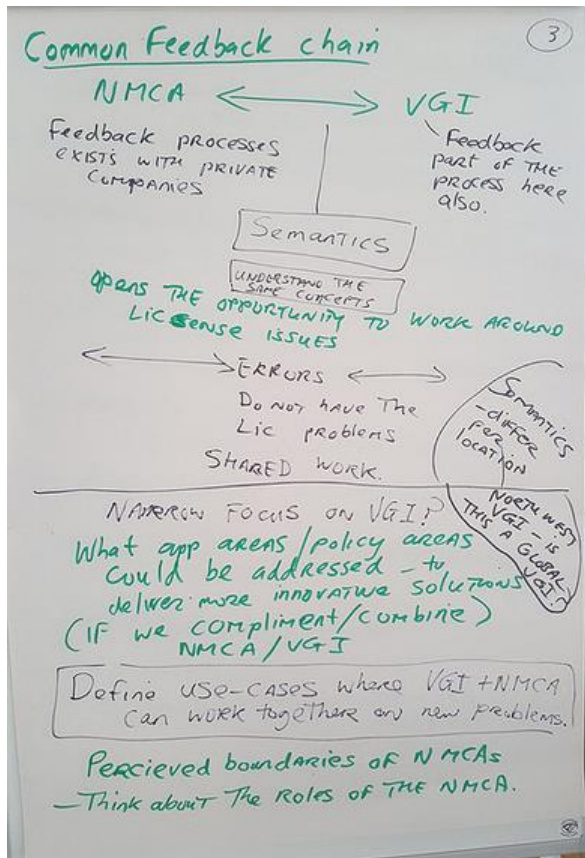 Common Feedback chain
3
NMCA ⟷ VGI
Feedback processes
exists with private
companies
Feedback
part of the
process here
also.
Semantics
UNDERSTAND THE
SAME CONCEPTS
opens THE OPPORTUNITY TO WORK AROUND
Licsense issues
⟷ ERRORS ⟷
Do not have The
Lic problems
SHARED WORK.
SEMANTICS
-differ
per
location
NARROW FOCUS ON VGI?
NORTH WEST
VGI - is
THIS A GLOBAL
VGI?
What app areas/policy areas
could be addressed - to
deliver more innovative solutions
(IF we compliment/combine)
NMCA/VGI
Define use-cases where VGI + NMCA
can work together on new problems.
Percieved boundaries of NMCAs
- Think about The roles of THE NMCA.